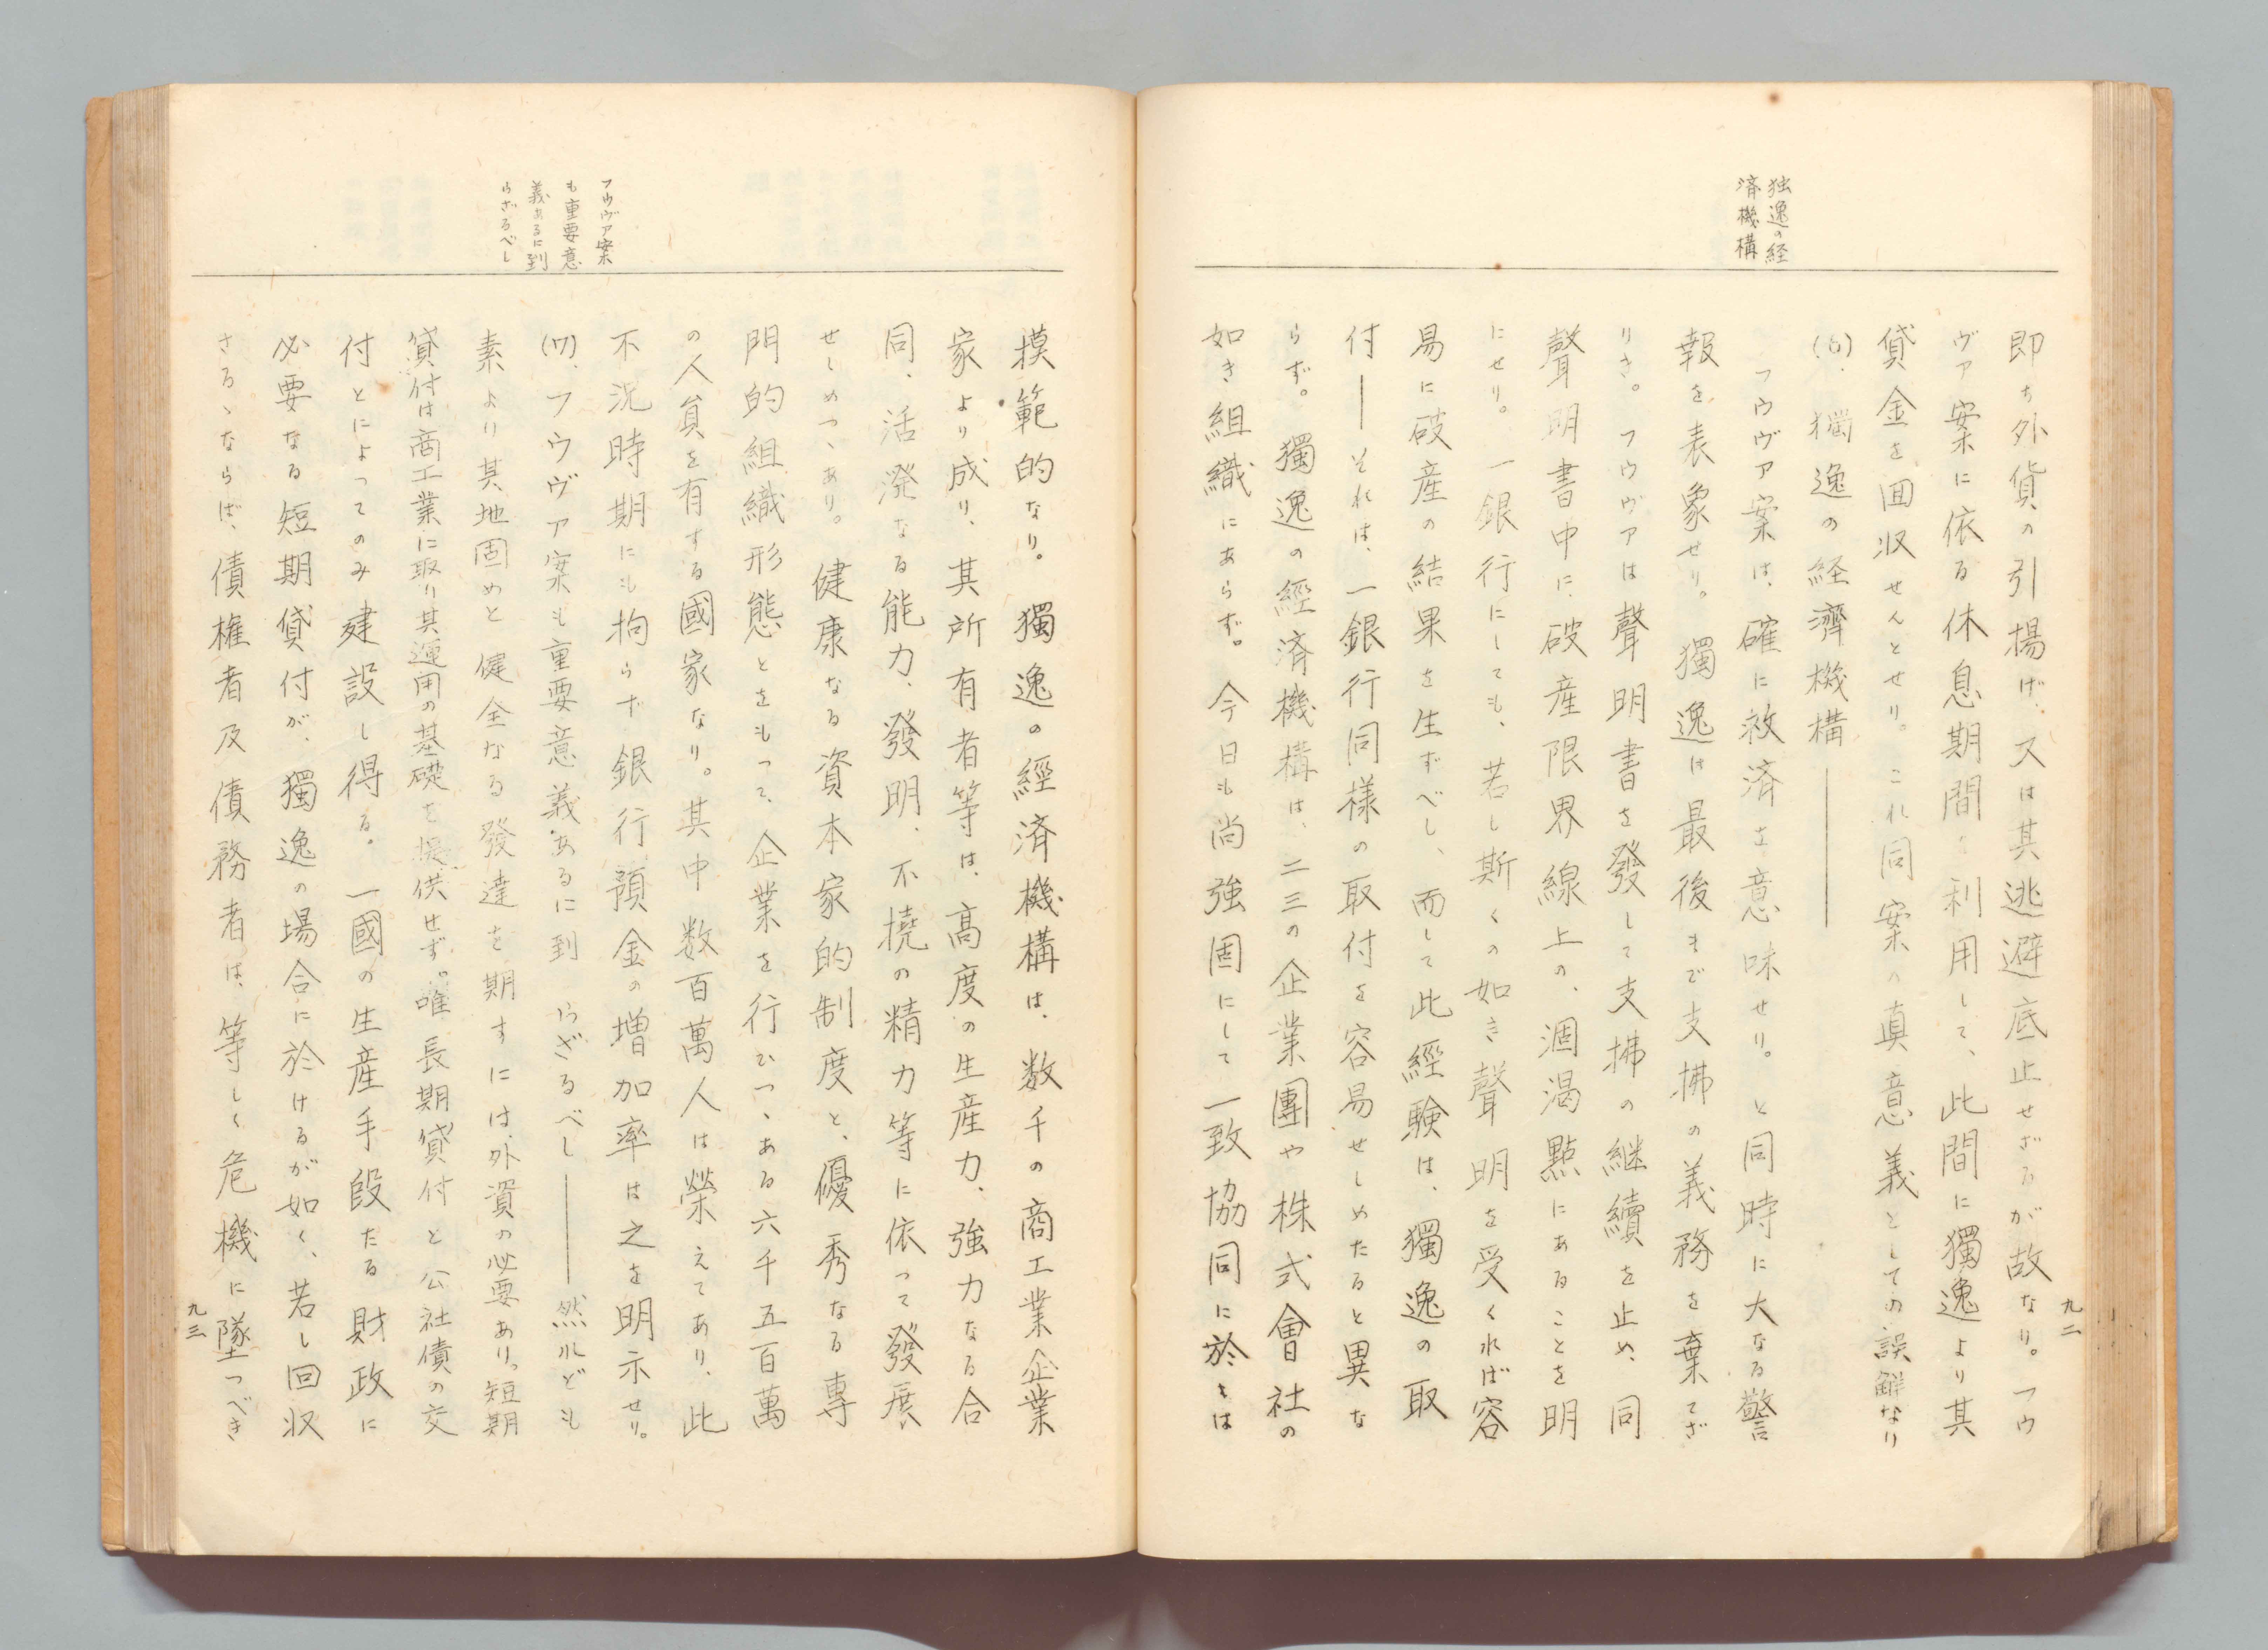 独逸の経
済機構
九二
即ち外貨の引揚げ、又は其逃避底止せざるが故なり。フウ
ヴァ案に依る休息期間を利用して、此間に獨逸より其
貸金を回収せんとせり。これ同案の真意義としての誤解なり
(6)、獨逸の経濟機構――
フウヴァ案は、確に救済を意味せり。と同時に大なる警
報を表象せり。獨逸は最後まで支拂の義務を棄てざ
りき。フウヴァは聲明書を發して支拂の継續を止め、同
聲明書中に、破産限界線上の、涸渇點にあることを明
にせり。一銀行にしても、若し斯くの如き聲明を受くれば容
易に破産の結果を生ずべし、而して此經験は、獨逸の取
付――それは、一銀行同様の取付を容易せしめたると異な
らず。獨逸の經済機構は、二三の企業團や株式會社の
如き組織にあらず。今日も尚強固にして一致協同に於ては
フウヴァ案
も重要意
義あるに到
らざるべし
摸範的なり。獨逸の經済機構は、数千の商工業企業
家より成り、其所有者等は、高度の生産力、強力なる合
同、活溌なる能力、發明、不撓の精力等に依って發展
せしめつゝあり。健康なる資本家的制度と、優秀なる專
門的組織形態とをもって、企業を行ひつゝある六千五百萬
の人員を有する國家なり。其中数百萬人は榮えてあり、此
不況時期にも拘らず銀行預金の増加率は之を明示せり。
(7)、フウヴァ案も重要意義あるに到らざるべし――然れども
素より其地固めと健全なる發達を期すには、外資の必要あり。短期
貸付は商工業に取り其運用の基礎を提供せず。唯長期貸付と公社債の交
付とによってのみ建設し得る。一國の生産手段たる財政に
必要なる短期貸付が、獨逸の場合に於けるが如く、若し回収
さるゝならば、債権者及債務者は、等しく危機に墜つべき
九三